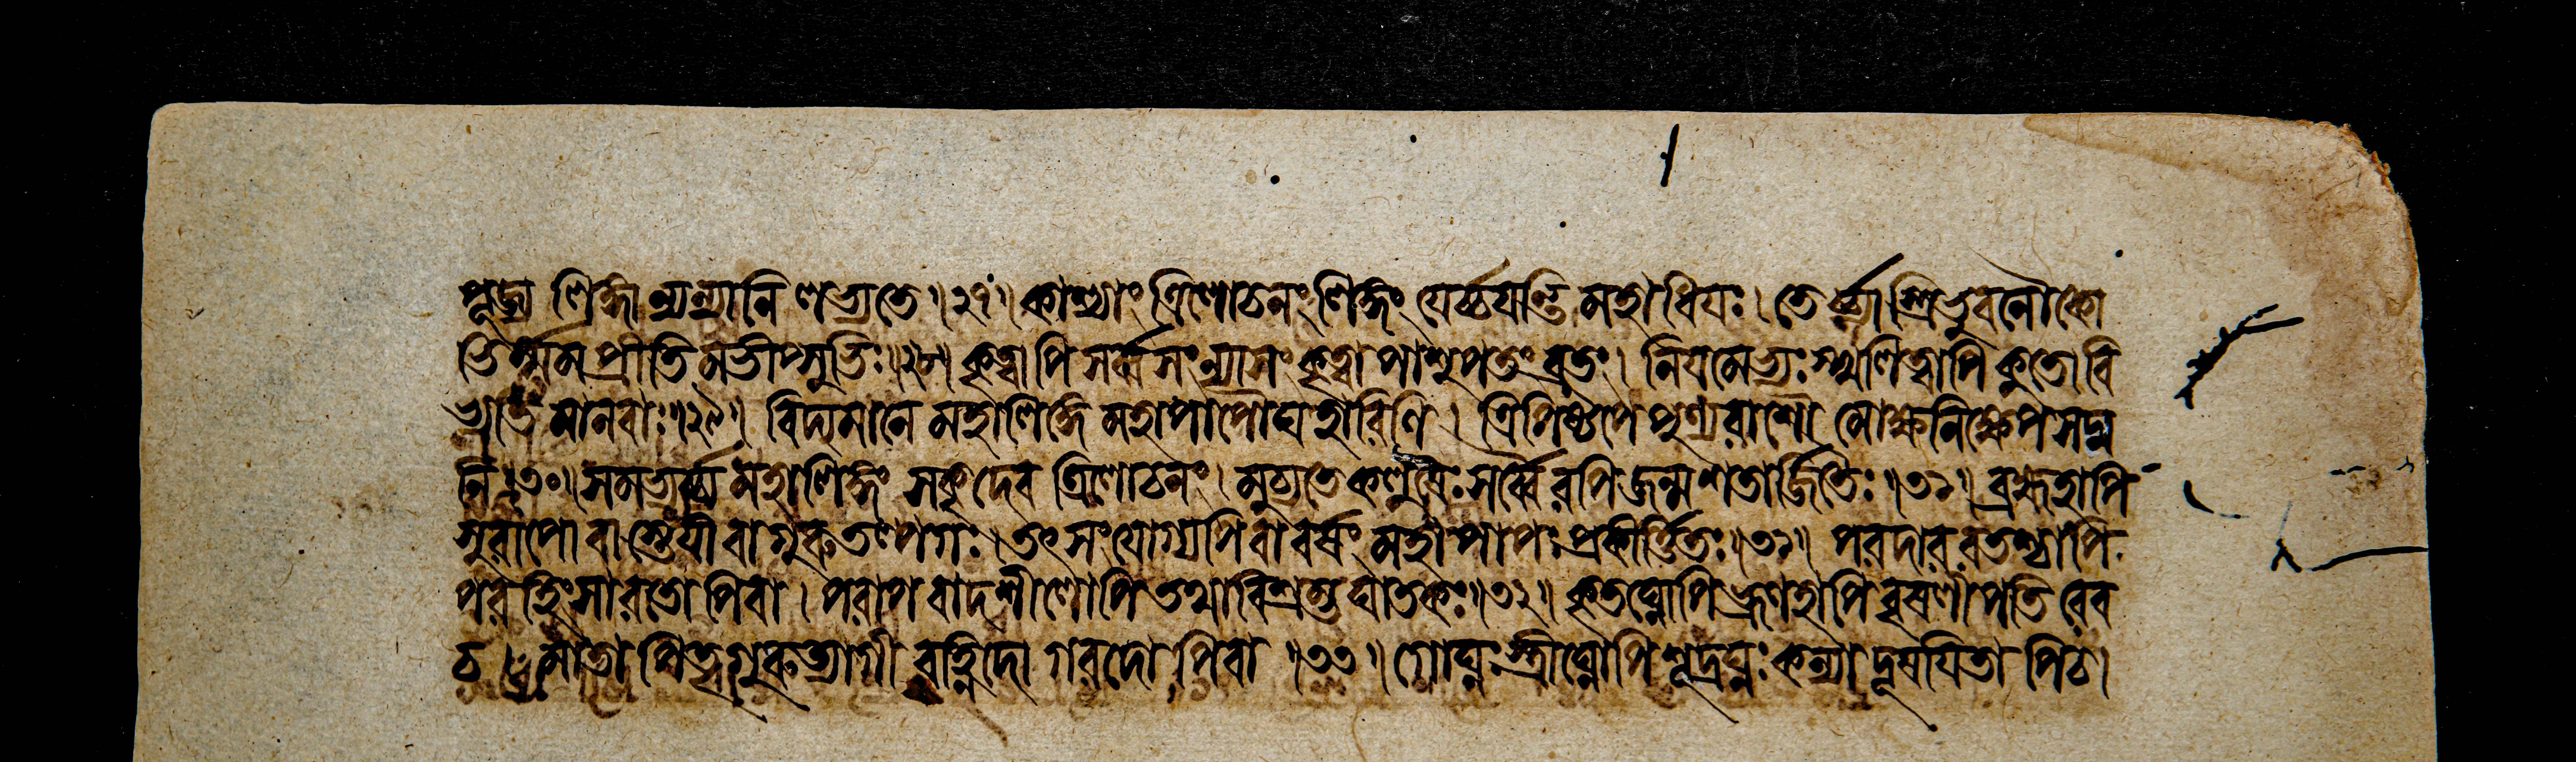 পূজ্য লিঙ্গান্যন্যানি লভ্যতে ॥২৭॥ কাশ্যাং ত্রিলোচনং লিঙ্গং যের্চ্চয়ন্তি মহাধিয়ঃ । তের্চ্চ্যাস্ত্রিভুবনৌকো
ভির্ম্মম প্রীতিমভীপ্সুভিঃ ॥২৮॥ কৃত্বাপি সর্ব্বসংন্যাসং কৃত্বা পাশুপতং ব্রতং । নিয়মেভ্যঃ স্খলিত্বাপি কুতো বি
ভ্যতি মানবাঃ ॥২৯॥ বিদ্যমানে মহালিঙ্গে মহাপাপৌঘহারিণি । ত্রিপিষ্টপে পুণ্যরাশৌ মোক্ষনিক্ষেপসদ্ম
নি ॥৩০॥ সমভ্যর্চ্চ্য মহালিঙ্গং সকৃদেব ত্রিলোচনং । মুচ্যতে কলুষৈঃ সর্ব্বৈরপি জন্মশতার্জ্জিতৈঃ ॥৩১॥ ব্রহ্মহাপি
সুরাপো বা স্তেয়ী বা গুরুতল্পগঃ । তৎসংযোগ্যপি বা বর্ষং মহাপাপঃ প্রকীর্ত্তিতঃ ॥৩১॥ পরদাররতশ্চাপি
পরহিংসারতোপি বা । পরাপবাদশীলোপি তথা বিশ্রম্ভঘাতকঃ ॥৩২॥ কৃতঘ্নোপি ভ্রূণহাপি বৃষলীপতিরেব
চ । মাতাপিতৃগুরুত্যাগী বহ্নিদো গরদোপি বা ॥৩৩॥ গোঘ্নঃ স্ত্রীঘ্নোপি শূদ্রঘ্নঃ কন্যাদূষয়িতাপি চ।